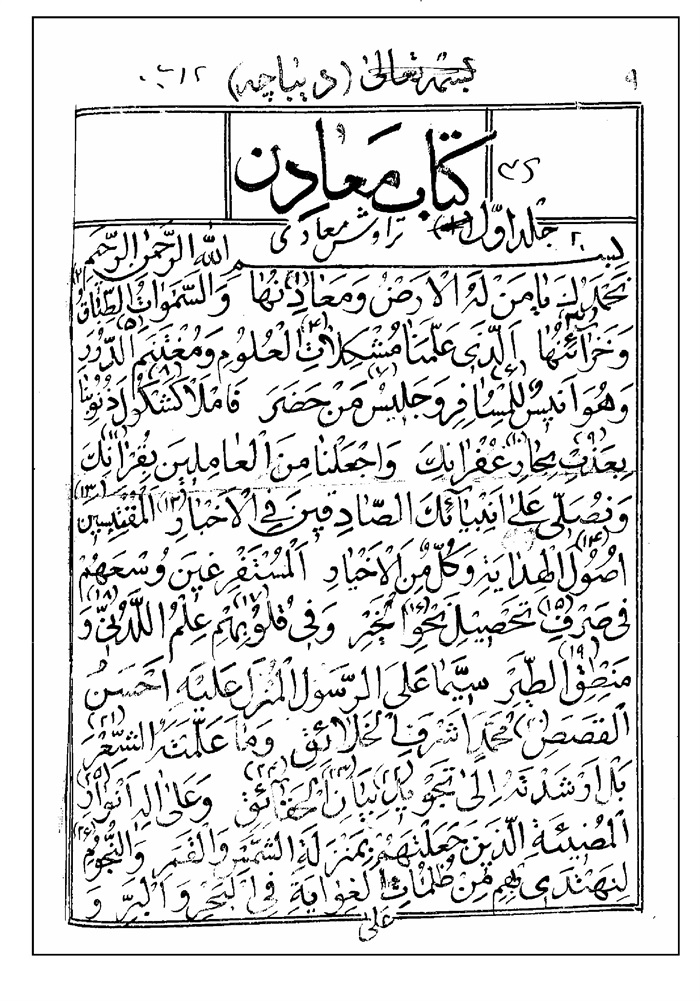 بسمه تعالی (دیباچه)
۹
کتاب معادن
جلد اوّل (۱) تراوش معادی
بسم الله الرّحمن الرّحیم (۲)
نَحْمَدُكَ یا مَنْ لَهُ الْاَرْضُ وَمَعادِنُها وَالسَّمٰوٰاتُ الطِّباقُ
(۳) وَخَزائِنُها اَلَّذی عَلَّمَنا مُشْکِلاتِ (۴) الْعُلُومِ وَمُغْتَنَمَ (۵) الدُّرَرِ
وَهُوَ اَنیسٌ لِلْمُسافِرِ (۶) وَجَلیسُ (۷) مَنْ حَضَرَ فَامْلَأْ کَشْکُولَ (۸) ذُنُوبِنا
بِعَذْبِ (۹) بِحارِ (۱۰) غُفْرانِكَ وَاجْعَلْنا مِنَ الْعامِلینَ (۱۱) بِقُرْاٰنِكَ
وَنُصَلّی عَلیٰ اَنْبِیآئِكَ الصّادِقینَ فِی الْاَخْبارِ (۱۲) الْمُقْتَبِسینَ (۱۳)
اُصُولَ الْهِدایَةِ وَکُلٍّ مِنَ الْاَخْیارِ اَلْمُسْتَفْرِغینَ وُسْعَهُمْ (۱۴)
فی صَرْفِ (۱۵) تَحْصیلِ نَحْوِ (۱۶) الْخَیْرِ وَفی قُلُوبِهِمْ (۱۷) عِلْمُ اللَّدُنِّیِّ (۱۸) وَ
مَنْطِقُ (۱۹) الطَّیْرِ سِیَّما عَلَی الرَّسُولِ الْمُنْزَلِ عَلَیْهِ اَحْسَنُ
الْقَصَصِ مُحَمَّدٍ اَشْرَفِ الْخَلائِقِ وَما عَلَّمْتَهُ الشِّعْرَ (۲۱)
بَلْ اَرْشَدْتَهُ اِلیٰ تَجْویدِ (۲۲) بَیانِ (۲۳) الْحَقائِقِ (۲۴) وَعَلیٰ اٰلِهِ اَنْوارِ (۲۵)
الْمُضیئَةِ الَّذینَ جَعَلْتَهُمْ بِمَنْزِلَةِ الشَّمْسِ وَالْقَمَرِ وَالنُّجُومِ (۲۶)
لِنَهْتَدِیَ بِهِمْ مِنْ ظُلُماتِ الْغِوایَةِ فِی الْبَحْرِ وَالْبَرِّ وَ
عَلیٰ